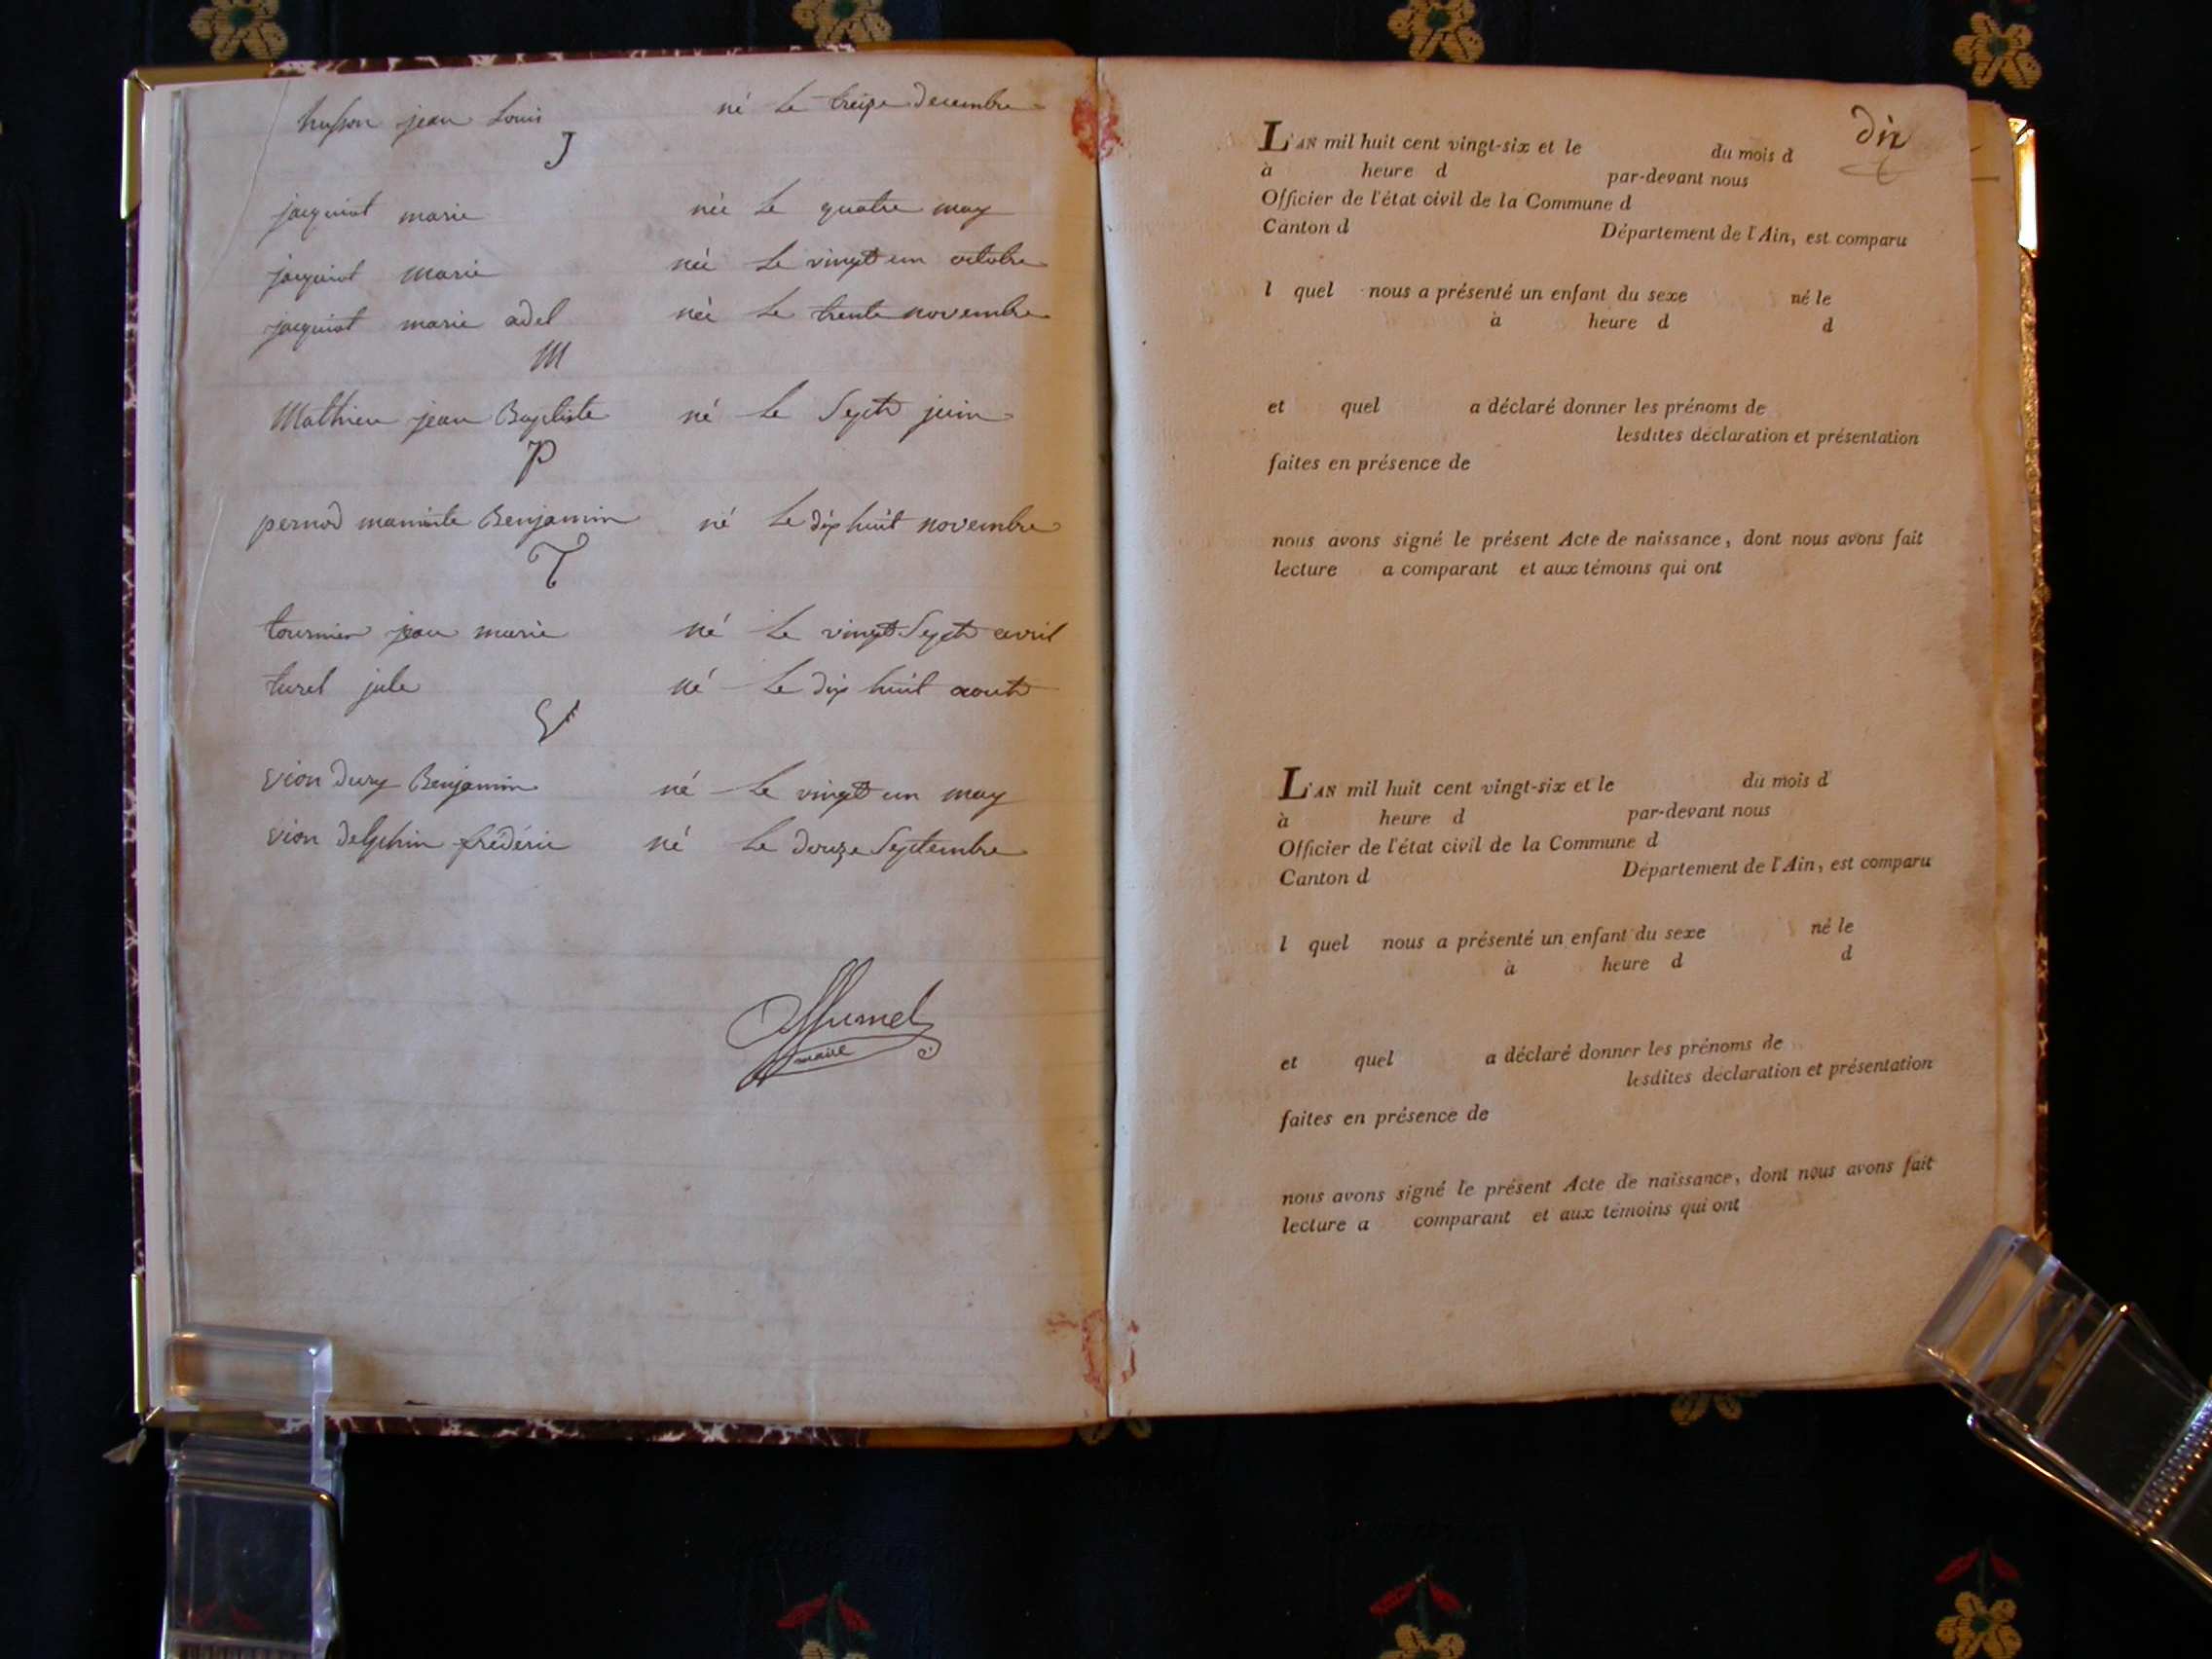 husson jean Louis né le treize decembre
J
jacquiot marie née le quatre may
jacquiot marie née le vingt un octobre
jacquiot marie adel née le trente novembre
M
Mathieu jean Baptiste né le Sept juin
P
pernod Benjamin né le dix huit novembre
T
tournier jean marie né le vingt Sept avril
turel jule né le dix huit aout
V
vion dury Benjamin né le vingt un may
vion delphin frédéric né le douze Septembre
maire
dix
L'AN mil huit cent vingt-six et le du mois d
à heure d par-devant nous
Officier de l'état civil de la Commune d
Canton d Département de l'Ain, est comparu
l quel nous a présenté un enfant du sexe né le
à heure d d
et quel a déclaré donner les prénoms de
lesdites déclaration et présentation
faites en présence de
nous avons signé le présent Acte de naissance, dont nous avons fait
lecture a comparant et aux témoins qui ont
L'AN mil huit cent vingt-six et le du mois d
à heure d par-devant nous
Officier de l'état civil de la Commune d
Canton d Département de l'Ain, est comparu
l quel nous a présenté un enfant du sexe né le
à heure d d
et quel a déclaré donner les prénoms de
lesdites déclaration et présentation
faites en présence de
nous avons signé le présent Acte de naissance, dont nous avons fait
lecture a comparant et aux témoins qui ont